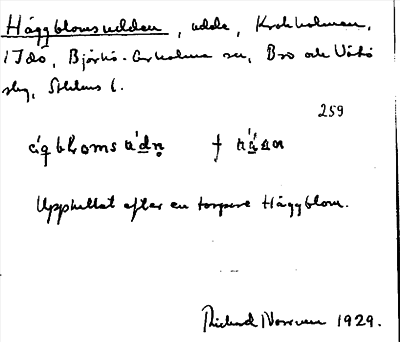 Häggblomsudden, udde, Krokholmen,
i Idö, Björkö-Arholma sn, Bro och Vätö
skg, Sthlms l.
259
Uppkallat efter en torpare Häggblom.
Richard Norrman 1929.